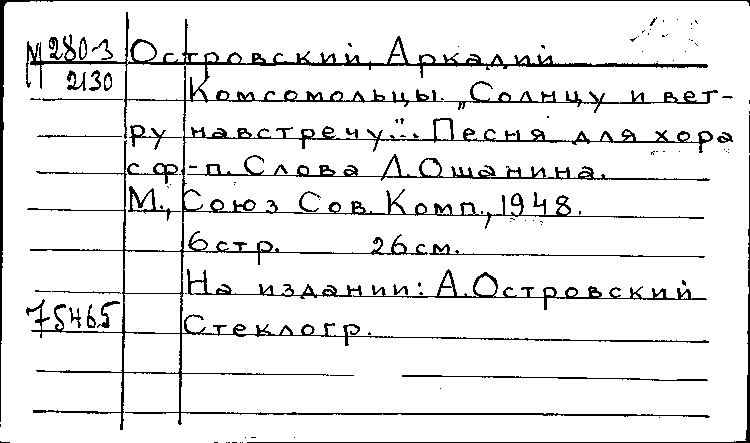 М 280-3 Островский, Аркадий
2130
Комсомольцы. „Солнцу и вет-
ру навстречу...". Песня для хора
с ф.-п. Слова Л. Ошанина.
М., Союз Сов. Комп., 1948.
6 стр. 26 см.
На издании: А. Островский
75465
Стеклогр.